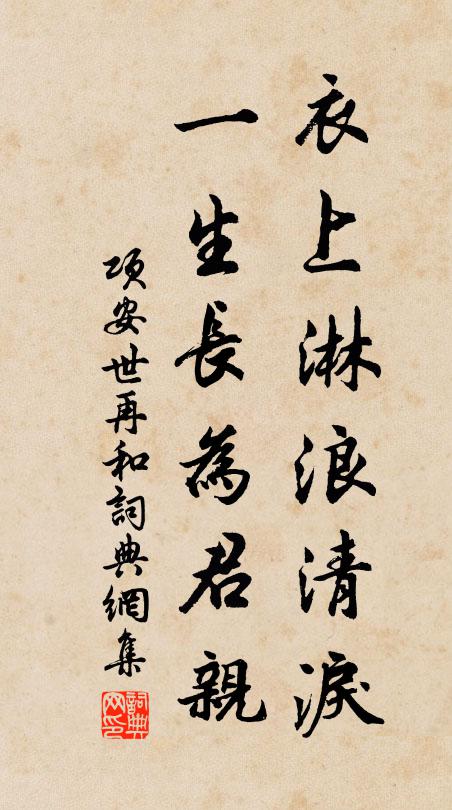 衣上淋浪清淚
一生長為君親
項安世再和詞典網集
詞典网印